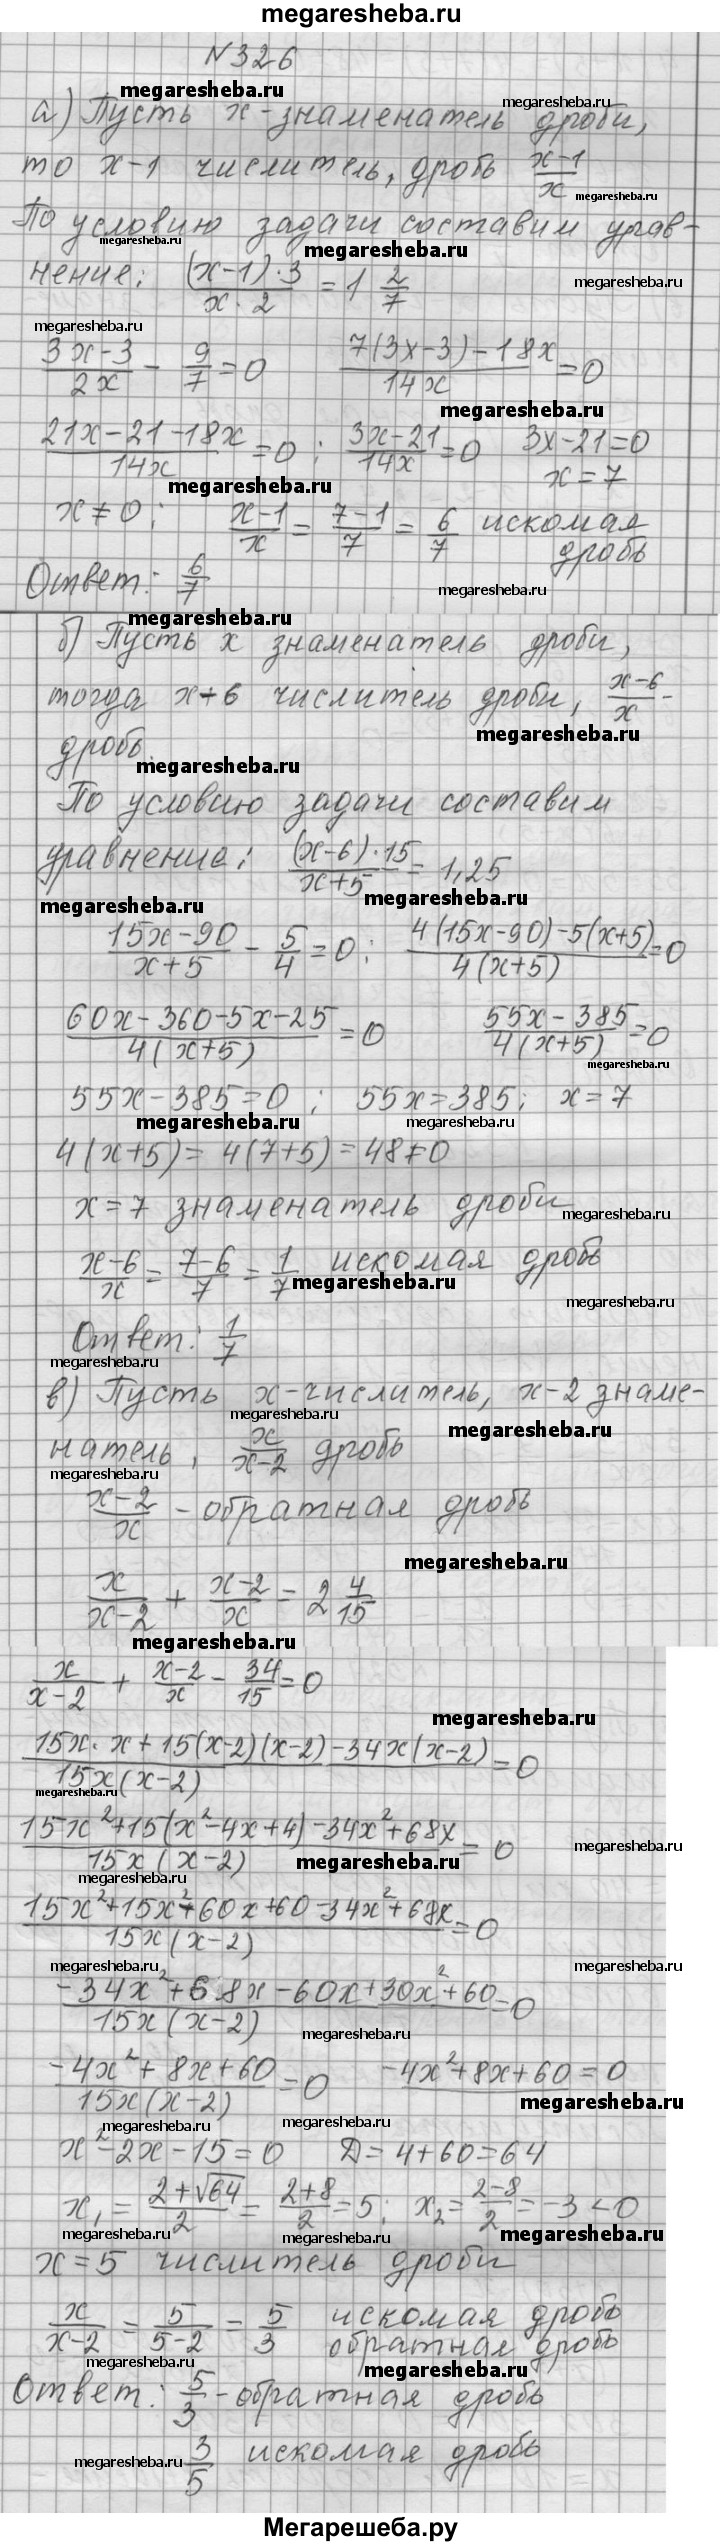 megaresheba.ru
N 326
megaresheba.ru
а) Пусть x - знаменатель дроби,
megaresheba.ru
то x-1 числитель, дробь (x-1)/x
megaresheba.ru
По условию задачи составим урав-
megaresheba.ru
megaresheba.ru
нение: ((x-1)·3)/(x·2) = 1 2/7
megaresheba.ru
(3x-3)/(2x) - 9/7 = 0 (7(3x-3)-18x)/(14x) = 0
megaresheba.ru
(21x-21-18x)/(14x) = 0 ; (3x-21)/(14x) = 0 3x-21=0
x=7
megaresheba.ru
x≠0; (x-1)/x = (7-1)/7 = 6/7 искомая
дробь
megaresheba.ru
Ответ: 6/7
megaresheba.ru
б) Пусть x знаменатель дроби,
тогда x+6 числитель дроби, (x-6)/x -
megaresheba.ru
дробь.
megaresheba.ru
По условию задачи составим
уравнение: ((x-6)·15)/(x+5) = 1,25
megaresheba.ru
megaresheba.ru
(15x-90)/(x+5) - 5/4 = 0; (4(15x-90)-5(x+5))/(4(x+5)) = 0
(60x-360-5x-25)/(4(x+5)) = 0 (55x-385)/(4(x+5)) = 0
megaresheba.ru
55x-385=0 ; 55x=385; x=7
megaresheba.ru
megaresheba.ru
4(x+5) = 4(7+5) = 48≠0
x=7 знаменатель дроби
megaresheba.ru
(x-6)/x = (7-6)/7 = 1/7 искомая дробь
megaresheba.ru
megaresheba.ru
Ответ: 1/7
megaresheba.ru
в) Пусть x-числитель, x-2 знаме-
megaresheba.ru
megaresheba.ru
натель, x/(x-2) дробь
megaresheba.ru
(x-2)/x - обратная дробь
megaresheba.ru
x/(x-2) + (x-2)/x = 2 4/15
megaresheba.ru
x/(x-2) + (x-2)/x - 34/15 = 0
megaresheba.ru
(15x·x+15(x-2)(x-2)-34x(x-2))/(15x(x-2)) = 0
megaresheba.ru
(15x²+15(x²-4x+4)-34x²+68x)/(15x(x-2)) = 0
megaresheba.ru
megaresheba.ru
megaresheba.ru
(15x²+15x²-60x+60-34x²+68x)/(15x(x-2)) = 0
megaresheba.ru
megaresheba.ru
(-34x²+68x-60x+30x²+60)/(15x(x-2)) = 0
megaresheba.ru
(-4x²+8x+60)/(15x(x-2)) = 0 -4x²+8x+60=0
megaresheba.ru
megaresheba.ru
megaresheba.ru
x²-2x-15=0 Д=4+60=64
x₁ = (2+√64)/2 = (2+8)/2 = 5; x₂ = (2-8)/2 = -3 < 0
megaresheba.ru
megaresheba.ru
megaresheba.ru
x=5 числитель дроби
x/(x-2) = 5/(5-2) = 5/3 искомая дробь
обратная дробь
megaresheba.ru
megaresheba.ru
Ответ: 5/3 - обратная дробь
3/5 искомая дробь
megaresheba.ru
Мегарешеба.ру